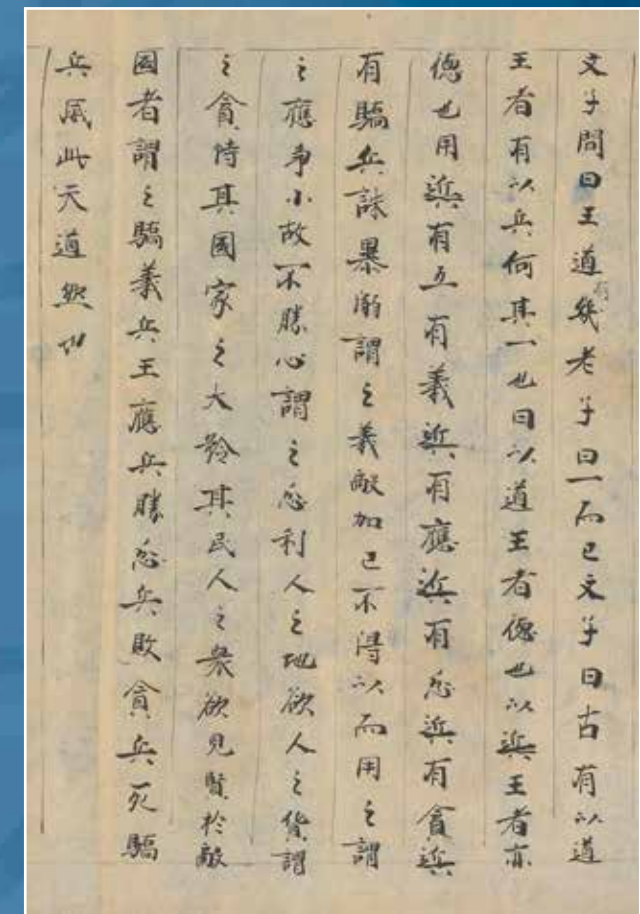 文子問曰王道有幾老子曰一而已文子曰古有以道
王者有以兵何其一也曰以道王者德也以兵王者亦
德也用兵有五有義兵有應兵有忿兵有貪兵
有驕兵誅暴溺謂之義敵加已不得以而用之謂
之應爭小故不勝心謂之忿利人之地欲人之貨謂
之貪恃其國家之大矜其民人之衆欲見賢於敵
國者謂之驕義兵王應兵勝忿兵敗貪兵死驕
兵滅此天道然也